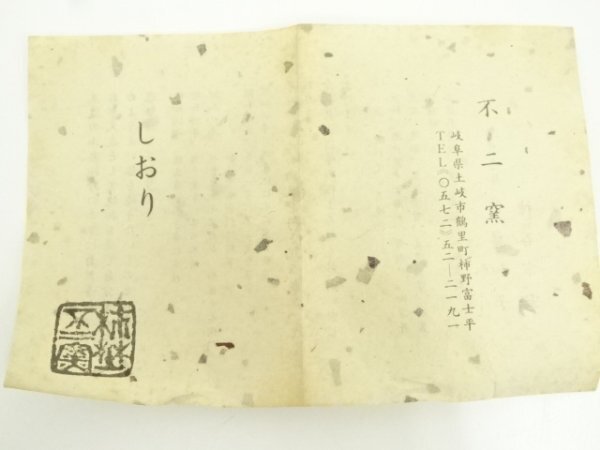 不二窯
岐阜県土岐市鶴里町柿野富士平
TEL(〇五七二)五二―二一九一
しおり
柿野
不二窯